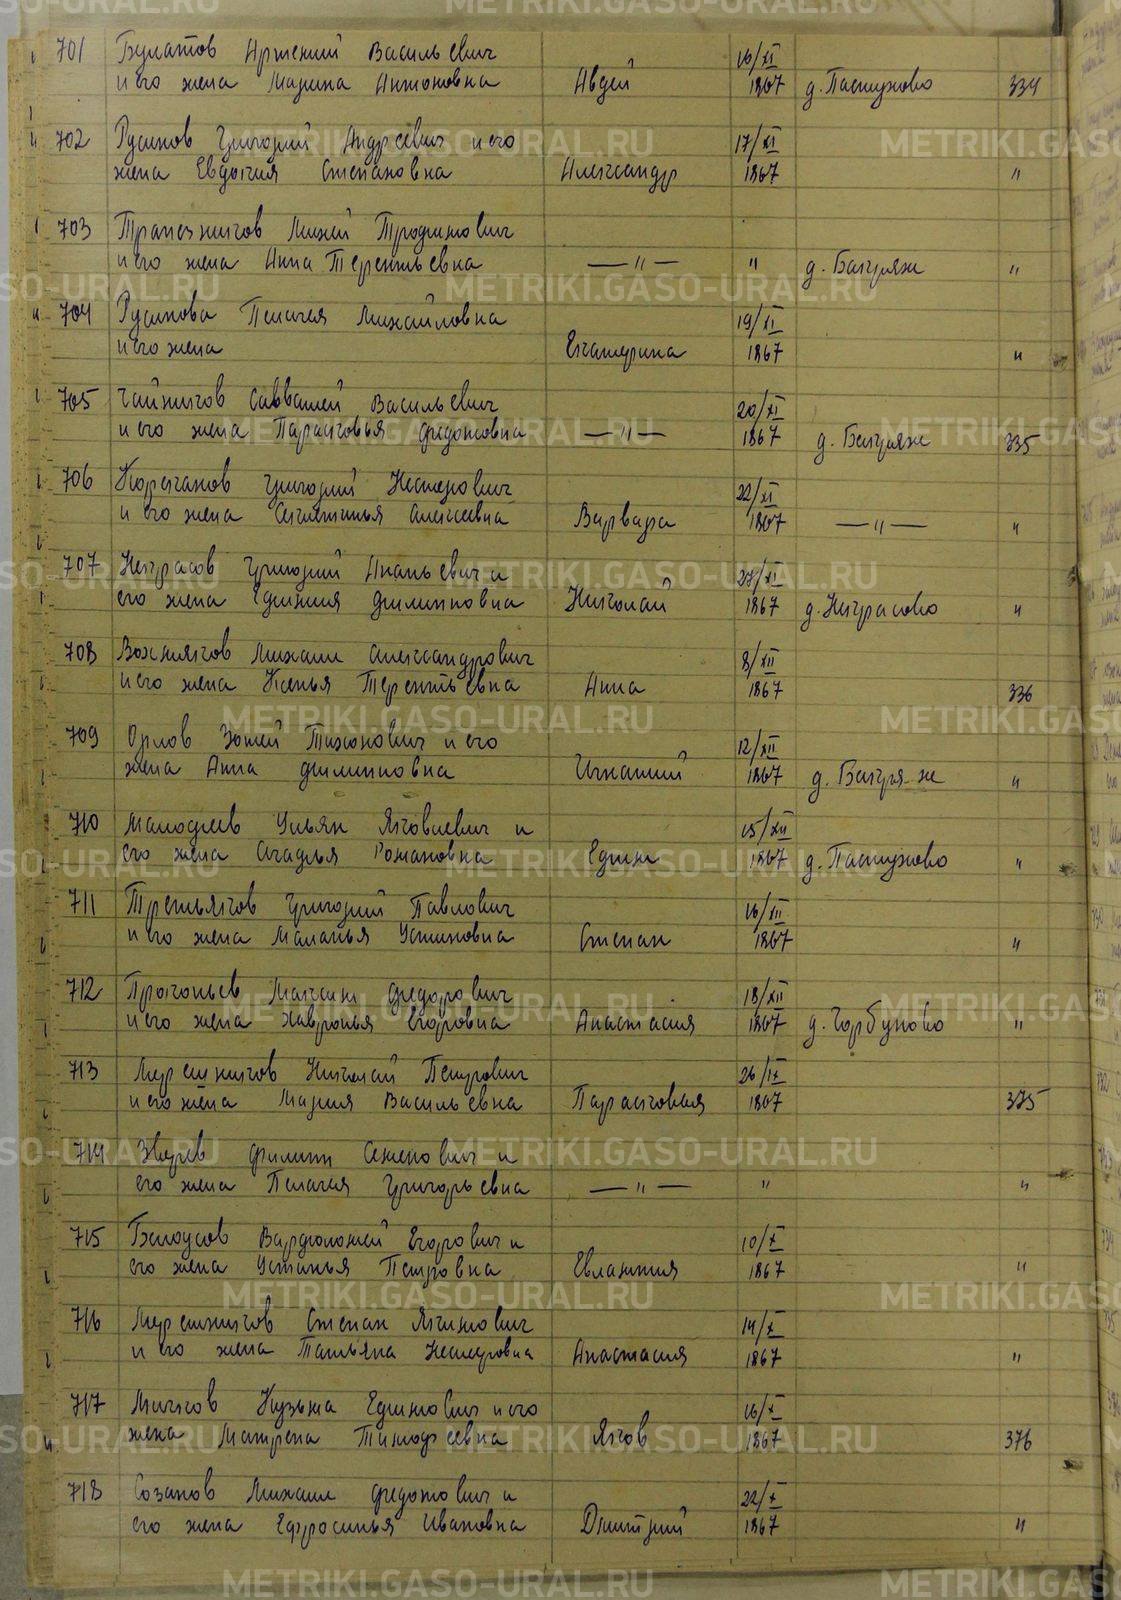 701 Булатов Арсений Васильевич 16/XI
и его жена Марина Антоновна Авдей 1867 д. Пастухово 334
702 Русинов Григорий Андреевич и его 17/XI
жена Евдокия Степановна Александр 1867 "
703 Трапезников Михей Трофимович
и его жена Анна Терентьевна — " — " д. Багряж "
704 Русинова Пелагея Михайловна 19/XI
и его жена Екатерина 1867 "
705 Чайников Савватей Васильевич 20/XI
и его жена Парасковья Федотовна — " — 1867 д. Багряж 335
706 Григорий Нестерович 22/XI
и его жена Алексеевна Варвара 1867 — " — "
707 Некрасов Григорий Ананьевич и 27/XI
его жена Ефимия Филипповна Николай 1867 д. Некрасово "
708 Вожняков Михаил Александрович 8/XII
и его жена Ксенья Терентьевна Анна 1867 336
709 Орлов Тихонович и его 12/XII
жена Анна Филипповна Игнатий 1867 д. Багряж "
710 Ульян Яковлевич и 15/XII
его жена Агафья Романовна Ефим 1867 д. Пастухово "
711 Третьяков Григорий Павлович 16/XII
и его жена Маланья Устиновна Степан 1867 "
712 Прокопьев Максим Федорович 18/XII
и его жена Хавронья Егоровна Анастасия 1867 д. Горбуново "
713 Мерешников Николай Петрович 26/IX
и его жена Мария Васильевна Парасковья 1867 375
714 Зверев Филипп Семенович и
его жена Пелагея Григорьевна — " — " "
715 Белоусов Варфоломей Егорович и 10/X
его жена Устинья Петровна Евлампия 1867 "
716 Мерешников Степан Якимович 14/X
и его жена Татьяна Нестеровна Анастасия 1867 "
717 Мичков Кузьма Ефимович и его 16/X
жена Матрена Тимофеевна Яков 1867 376
718 Созанов Михаил Федотович и 22/X
его жена Ефросинья Ивановна Дмитрий 1867 "
METRIKI.GASO-URAL.RU